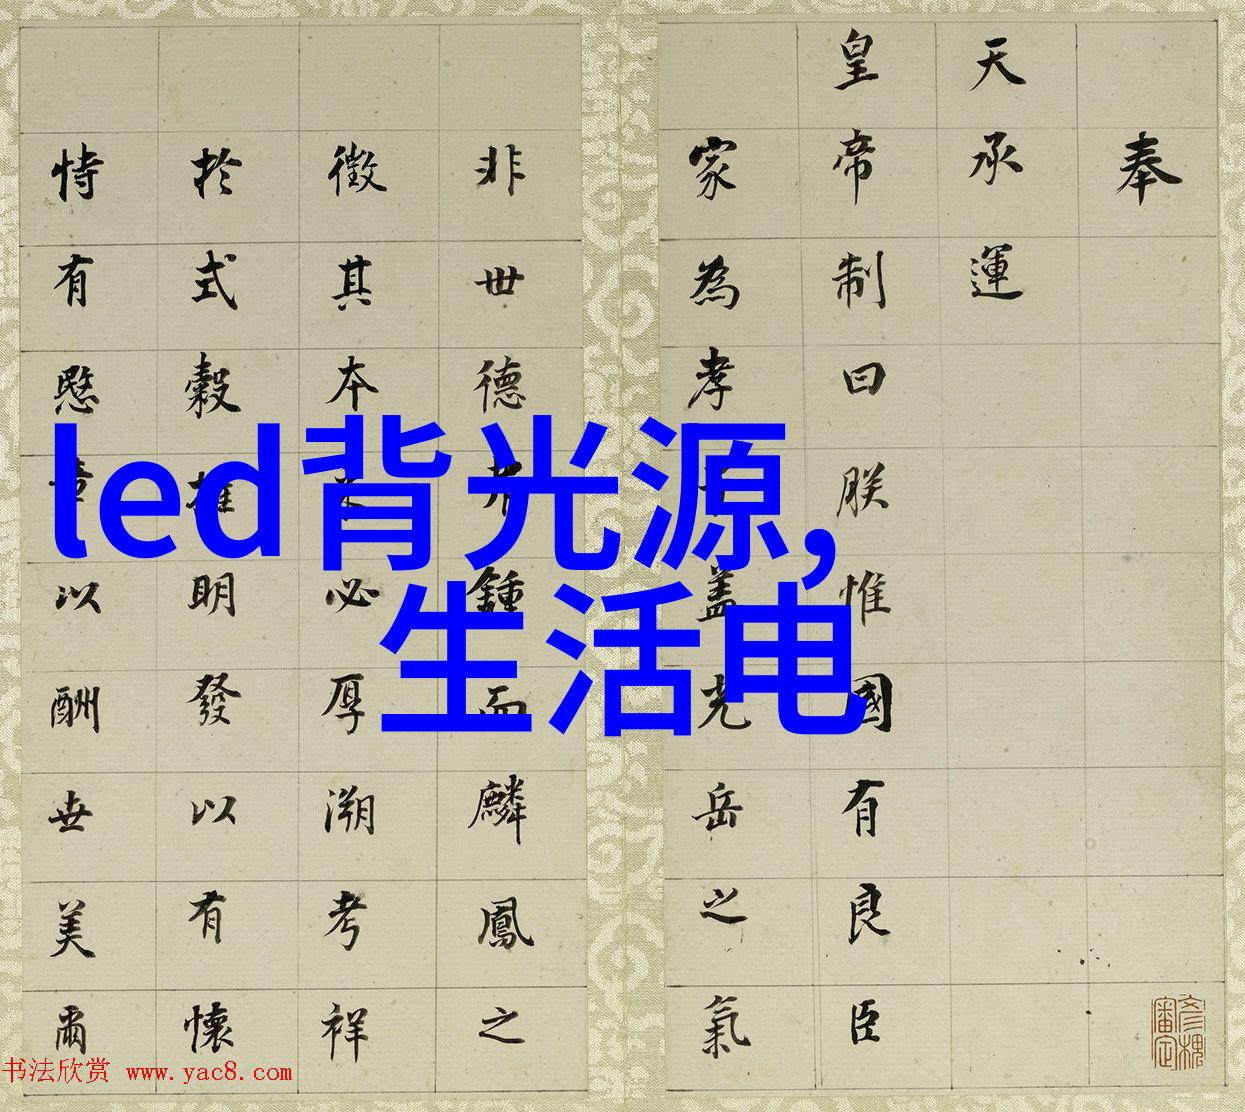 奉
天承運
皇帝制曰朕惟國有良臣
家為孝子蓋光岳之氣
非世德弗鍾而麟鳳之
徵其本必厚溯考祥
於式穀明發以有懷
恃有愍章以酬世美爾
led背光源,
生活电
书法欣赏 www.yac8.com